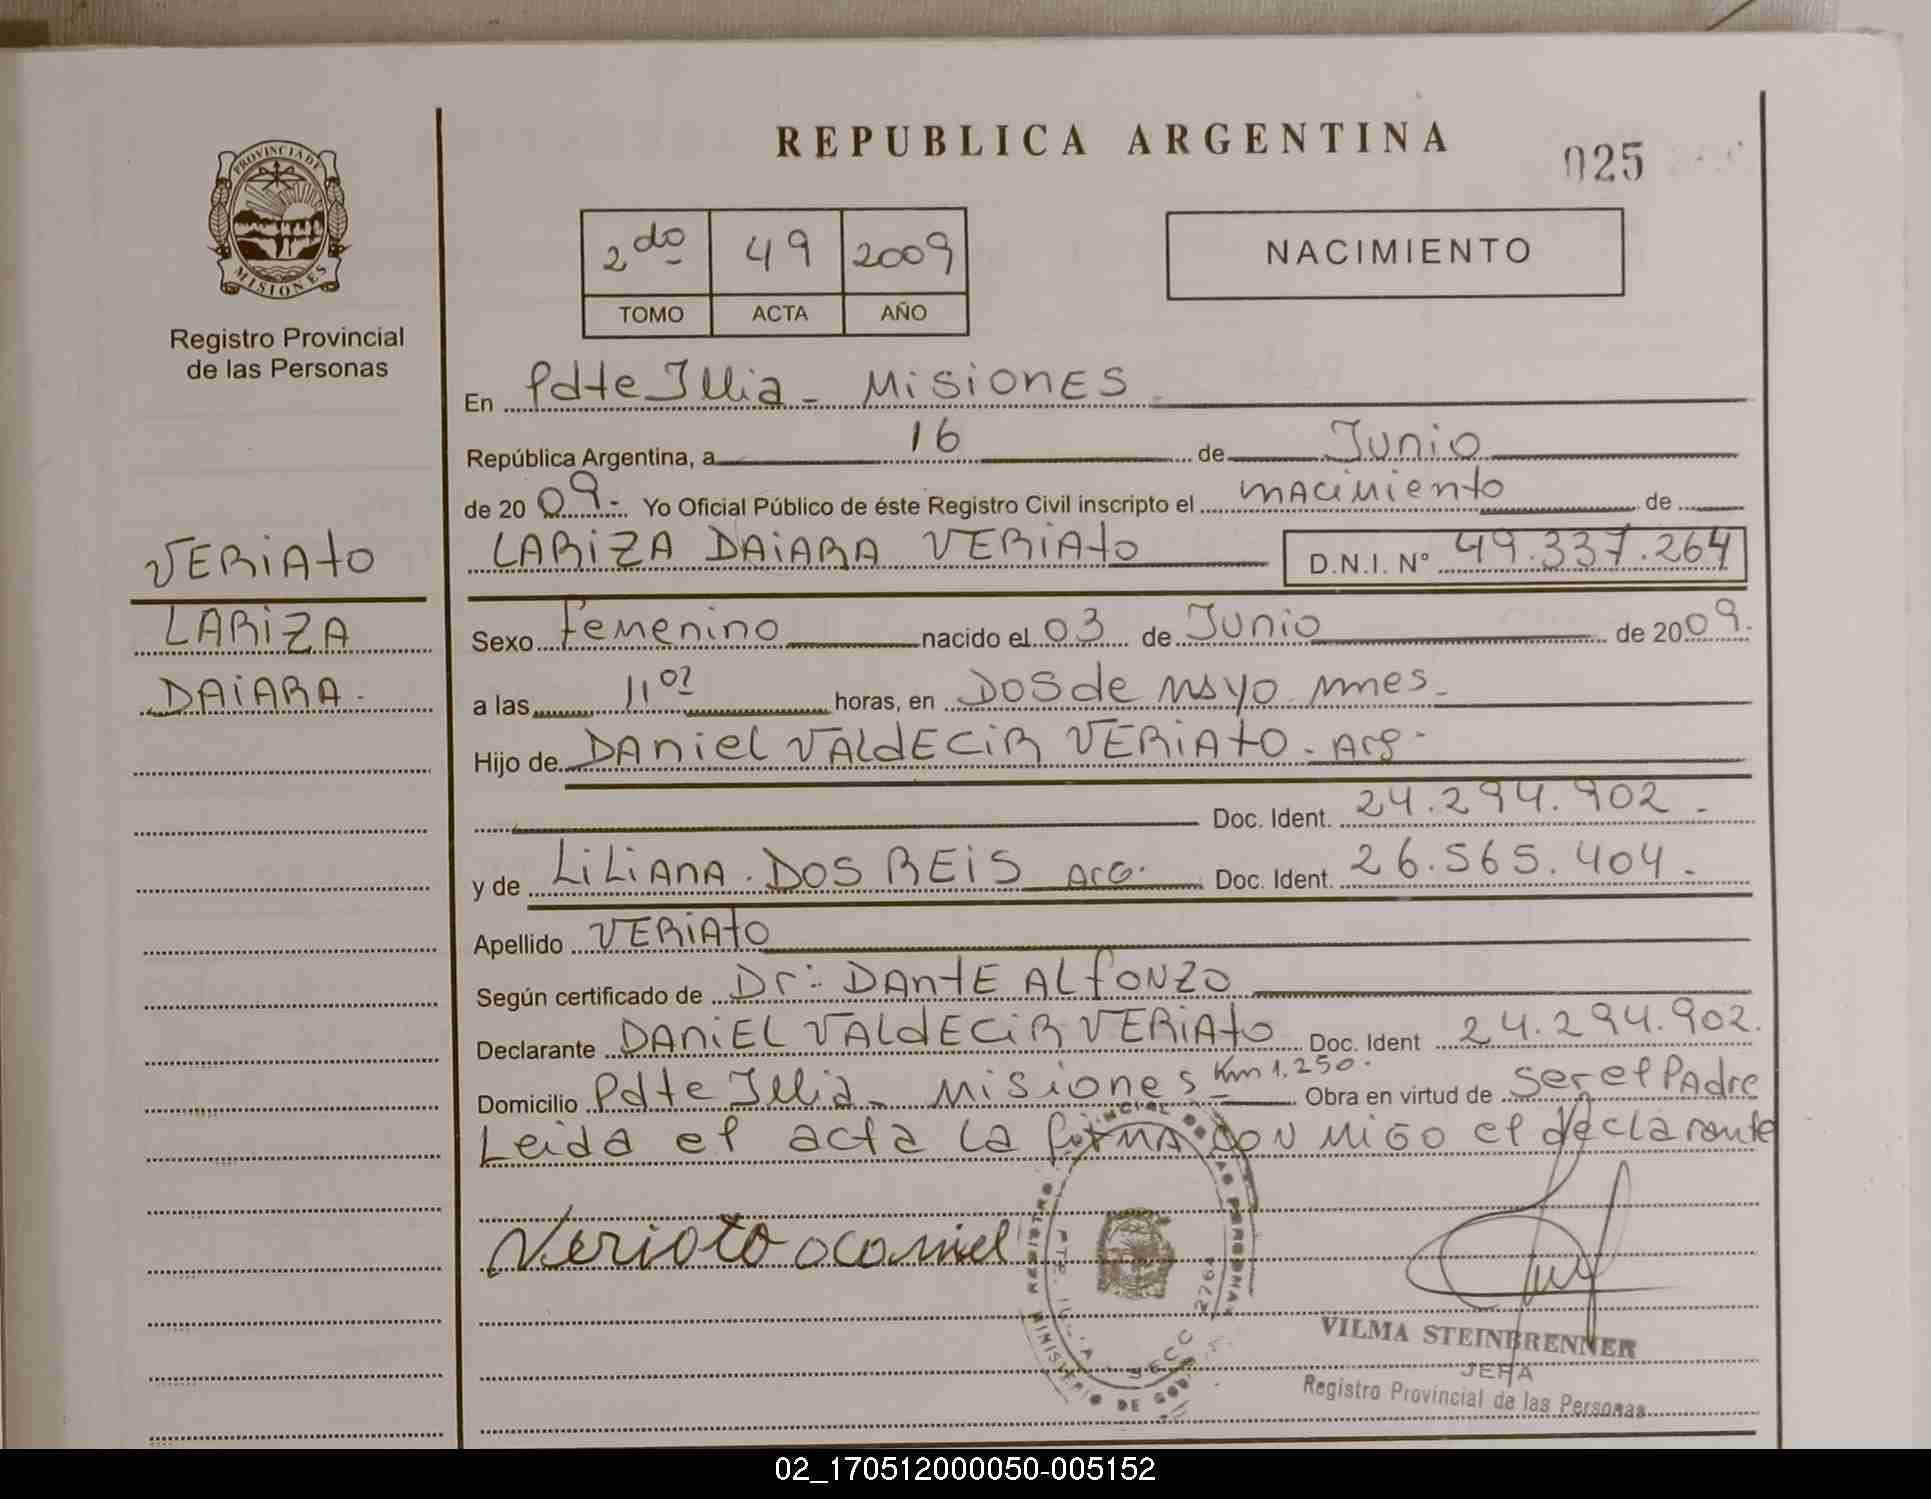 REPUBLICA ARGENTINA
025
PROVINCIA DE
MISIONES
Registro Provincial
de las Personas
2do 49 2009
TOMO ACTA AÑO
NACIMIENTO
En Pdte Illia - MisionES
República Argentina, a 16 de Junio
de 2009.- Yo Oficial Público de éste Registro Civil inscripto el nacimiento de
LARiZA DAiARA VERiAto D.N.I. Nº 49.337.264
VERiAto
LARiZA
DAiARA.
Sexo femenino nacido el 03 de Junio de 2009.
a las 11 horas, en Dos de Mayo mnes.
Hijo de DAniel VALdECiR VERiAtO - Arg.
Doc. Ident. 24.294.902 -
y de LiLiAnA . DOS REiS Arg. Doc. Ident. 26.565.404 -
Apellido VERiAtO
Según certificado de Dr: DAntE ALfONZO
Declarante DAniEL VALdECiR VERiAto Doc. Ident 24.294.902.
Domicilio Pdte Illia - Misiones Km 1.250. Obra en virtud de ser el PAdre
Leida el acta La firmA CON MiGO el declarante
Verioto
VILMA STEINBRENNER
JEFA
Registro Provincial de las Personas
SECC 2764
MINISTERIO DE
02_170512000050-005152